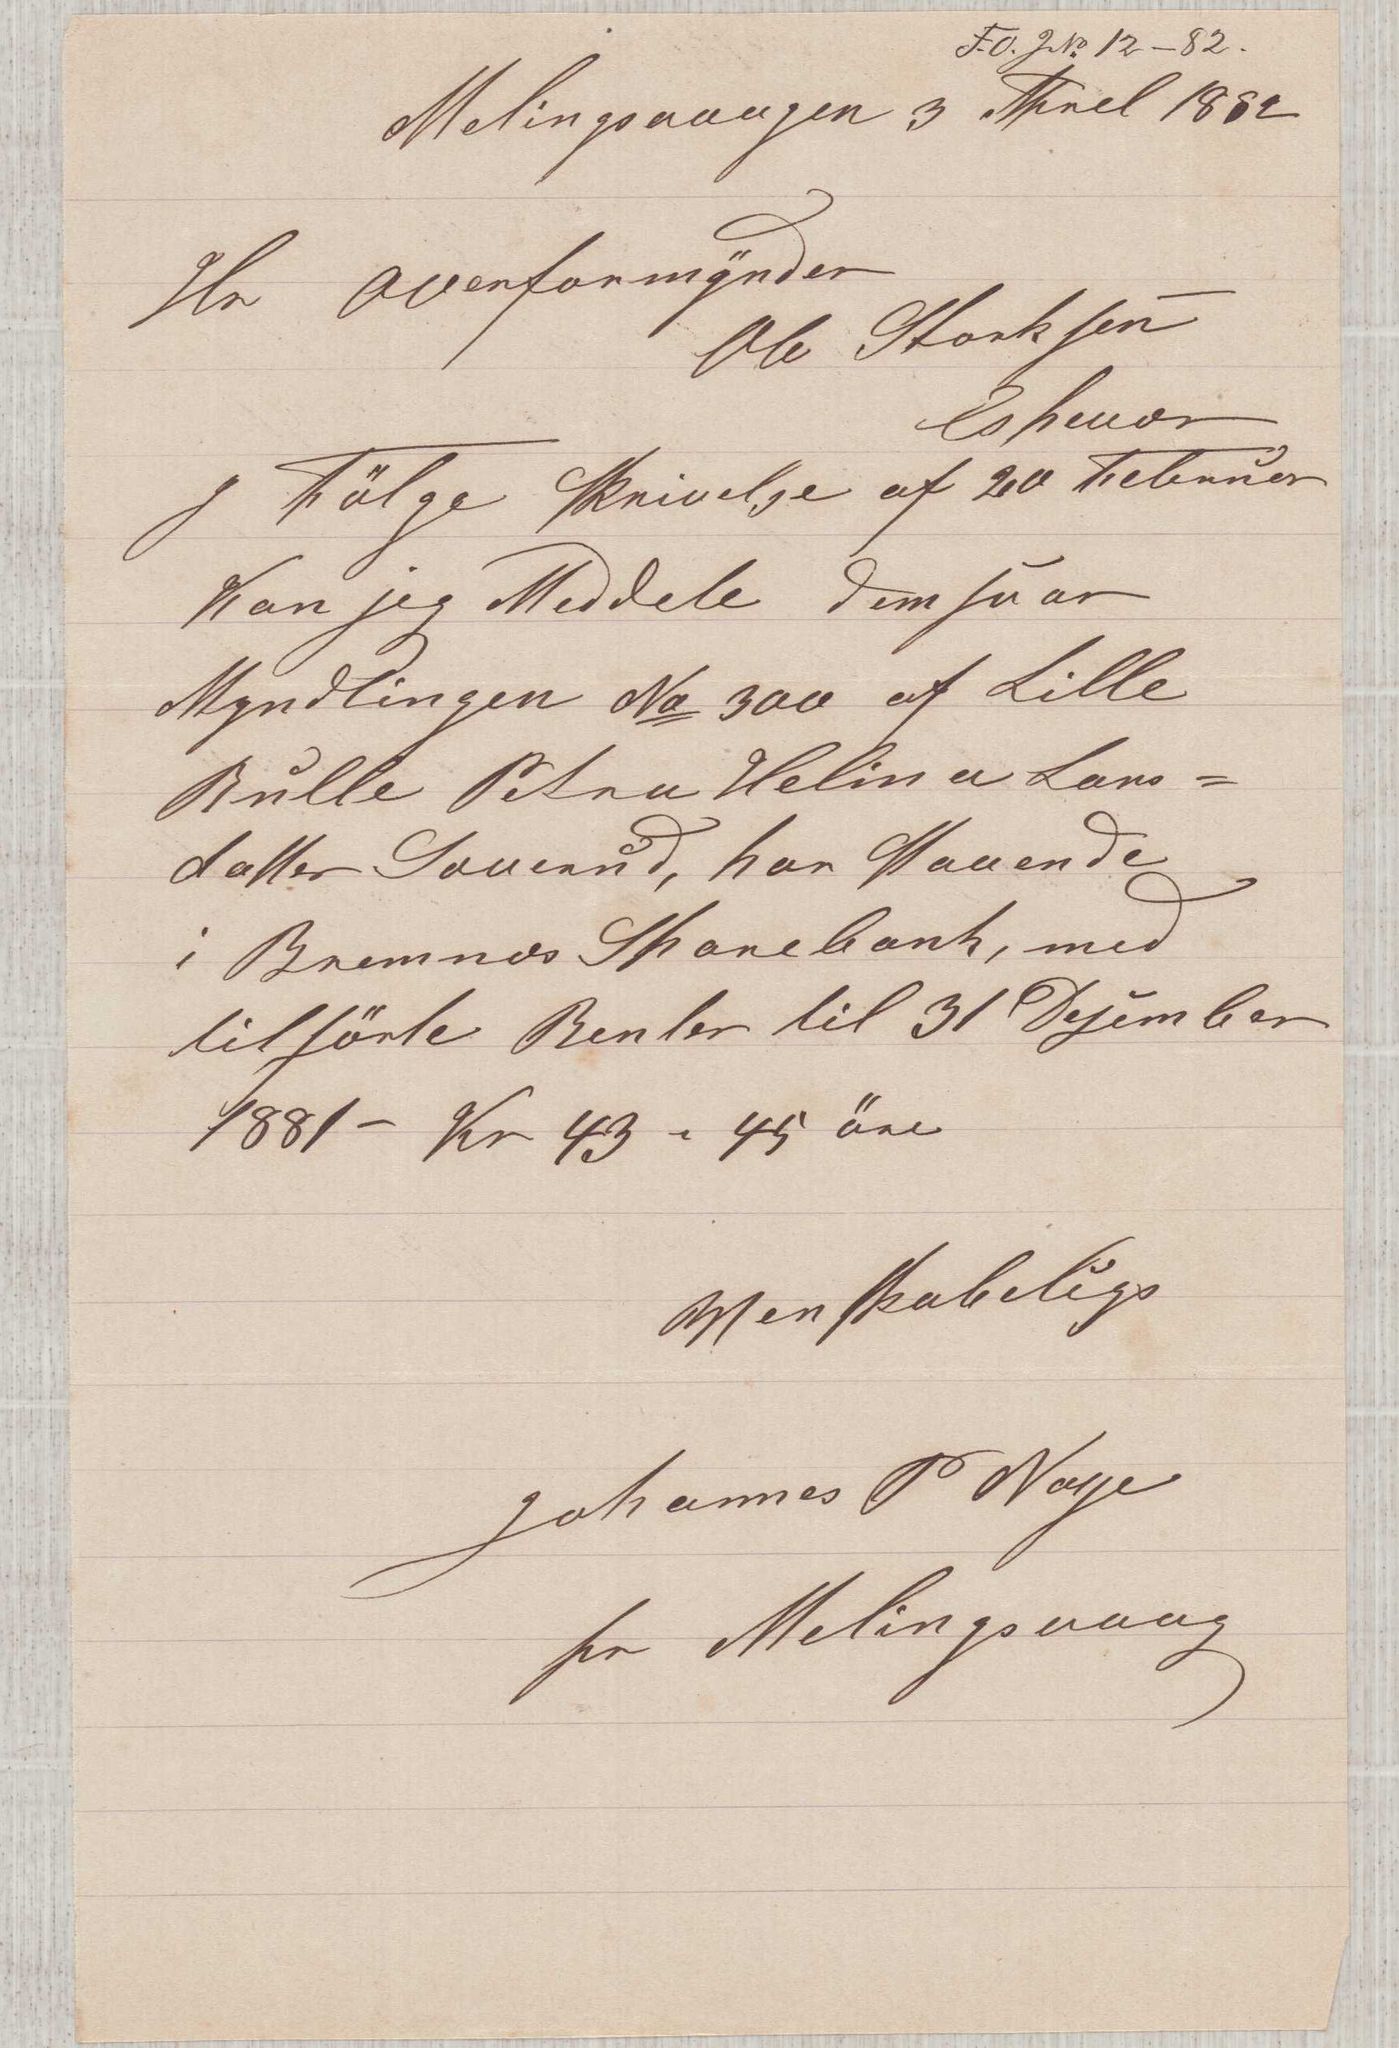 F.O. J№. 12 – 82.
Melingsvaagen 3 Aprel 1882
Hr overformÿnder
Ole Storksen
Espevær
J Fölge Skrivelse af 20 Februer
Kan jeg Meddele dem svar
Myndlingen No 300 af Lille
Rulle Petra Helina Lars=
datter Soverud, har Staaende
i Bremnæs Sparebank, med
tilførte Renter til 31 Desember
1881 – Kr 43 „ 45 öre
Wenskabeligs
Johannes P Noye
pr Melingsvaag